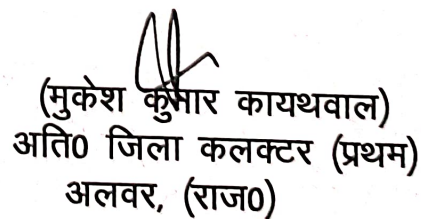 (मुकेश कुमार कायथवाल)
अति0 जिला कलक्टर (प्रथम)
अलवर, (राज0)